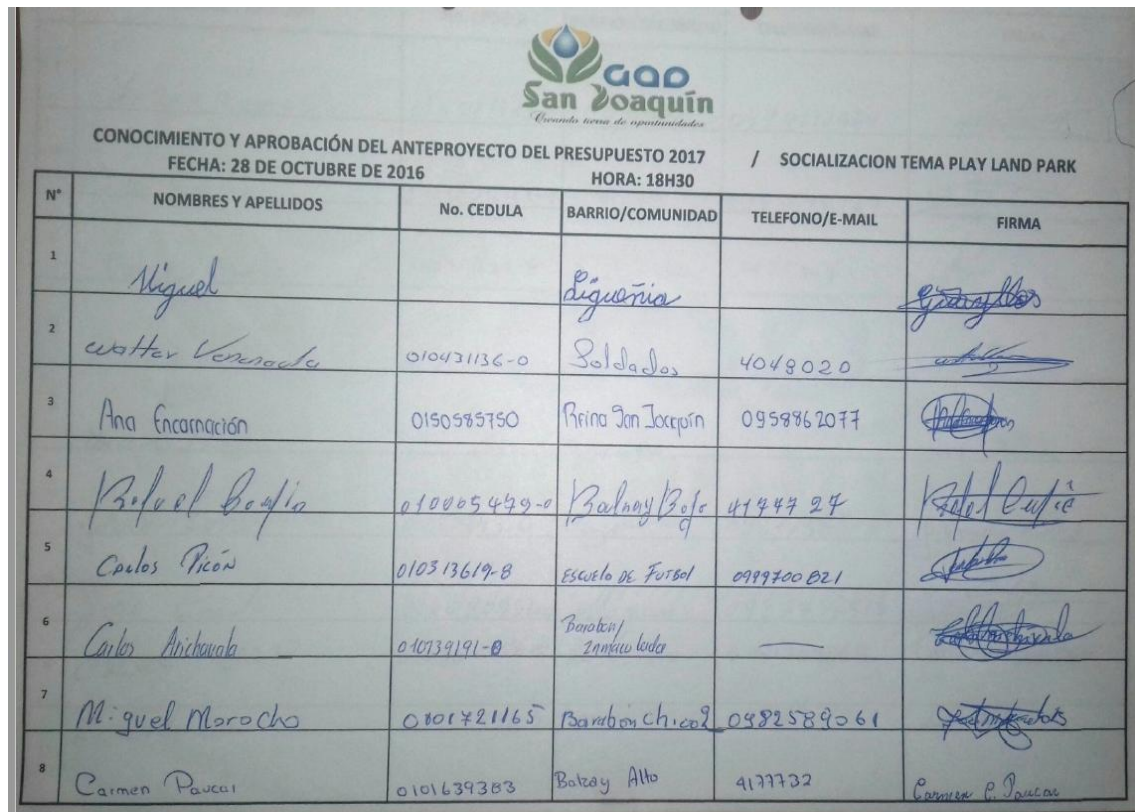 GAD
San Joaquín
Creando tierra de oportunidades
CONOCIMIENTO Y APROBACIÓN DEL ANTEPROYECTO DEL PRESUPUESTO 2017 / SOCIALIZACION TEMA PLAY LAND PARK
FECHA: 28 DE OCTUBRE DE 2016 HORA: 18H30
N° NOMBRES Y APELLIDOS No. CEDULA BARRIO/COMUNIDAD TELEFONO/E-MAIL FIRMA
1 Miguel
2 Walter 010431136-0 Soldados 4049020
3 Ana Encarnación 0150585750 Reina San Joaquín 0958862077
4 010005479-0 4177727
5 Carlos Picón 010313619-8 ESCUELA DE FUTBOL 0999700821
6 Carlos Anchavala 010739191-0
7 Miguel Morocho 0101721165 Barabon Chico 2 0982589061
8 Carmen Paucar 0101639383 Balzay Alto 4177732 Carmen C. Paucar